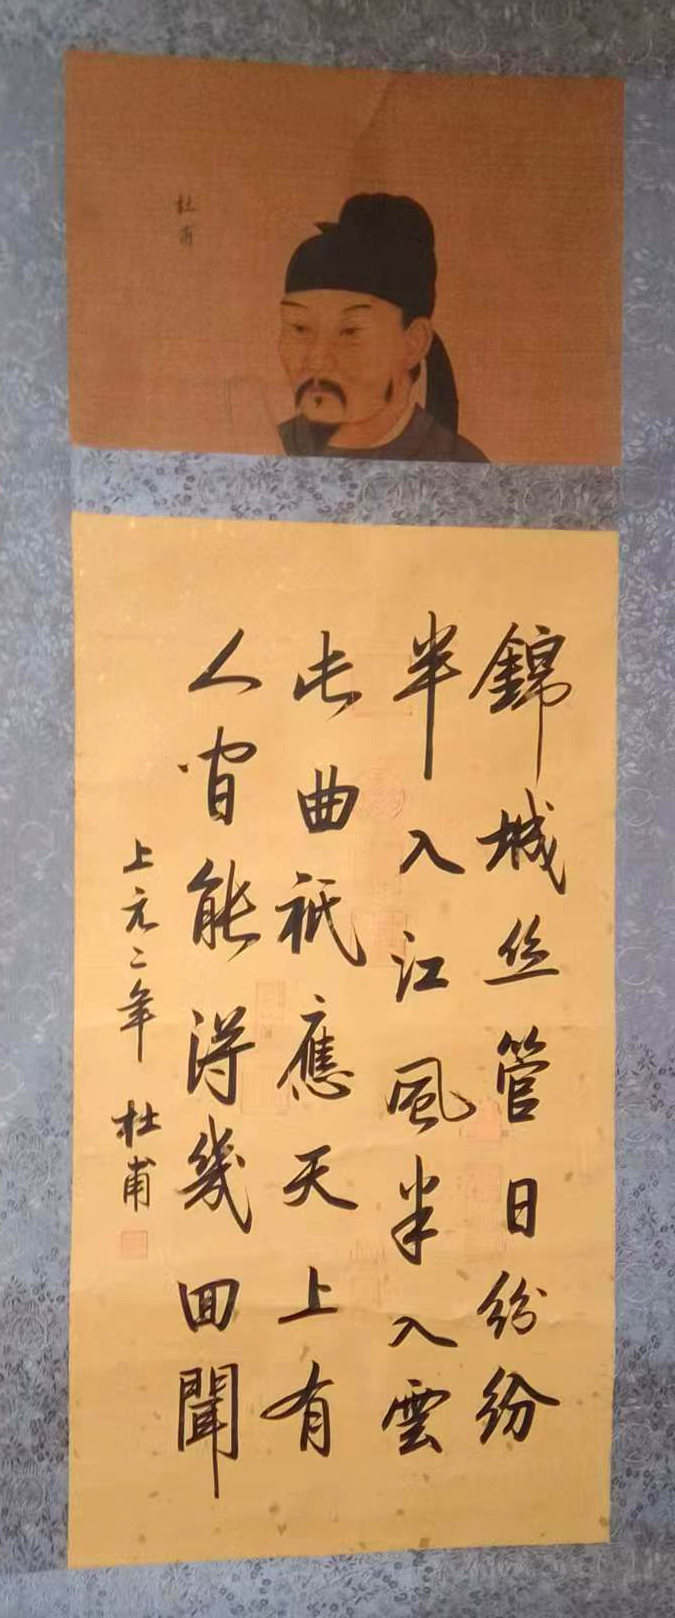 杜甫
錦城丝管日紛紛
半入江風半入雲
此曲祇應天上有
人間能得幾回聞
上元二年 杜甫